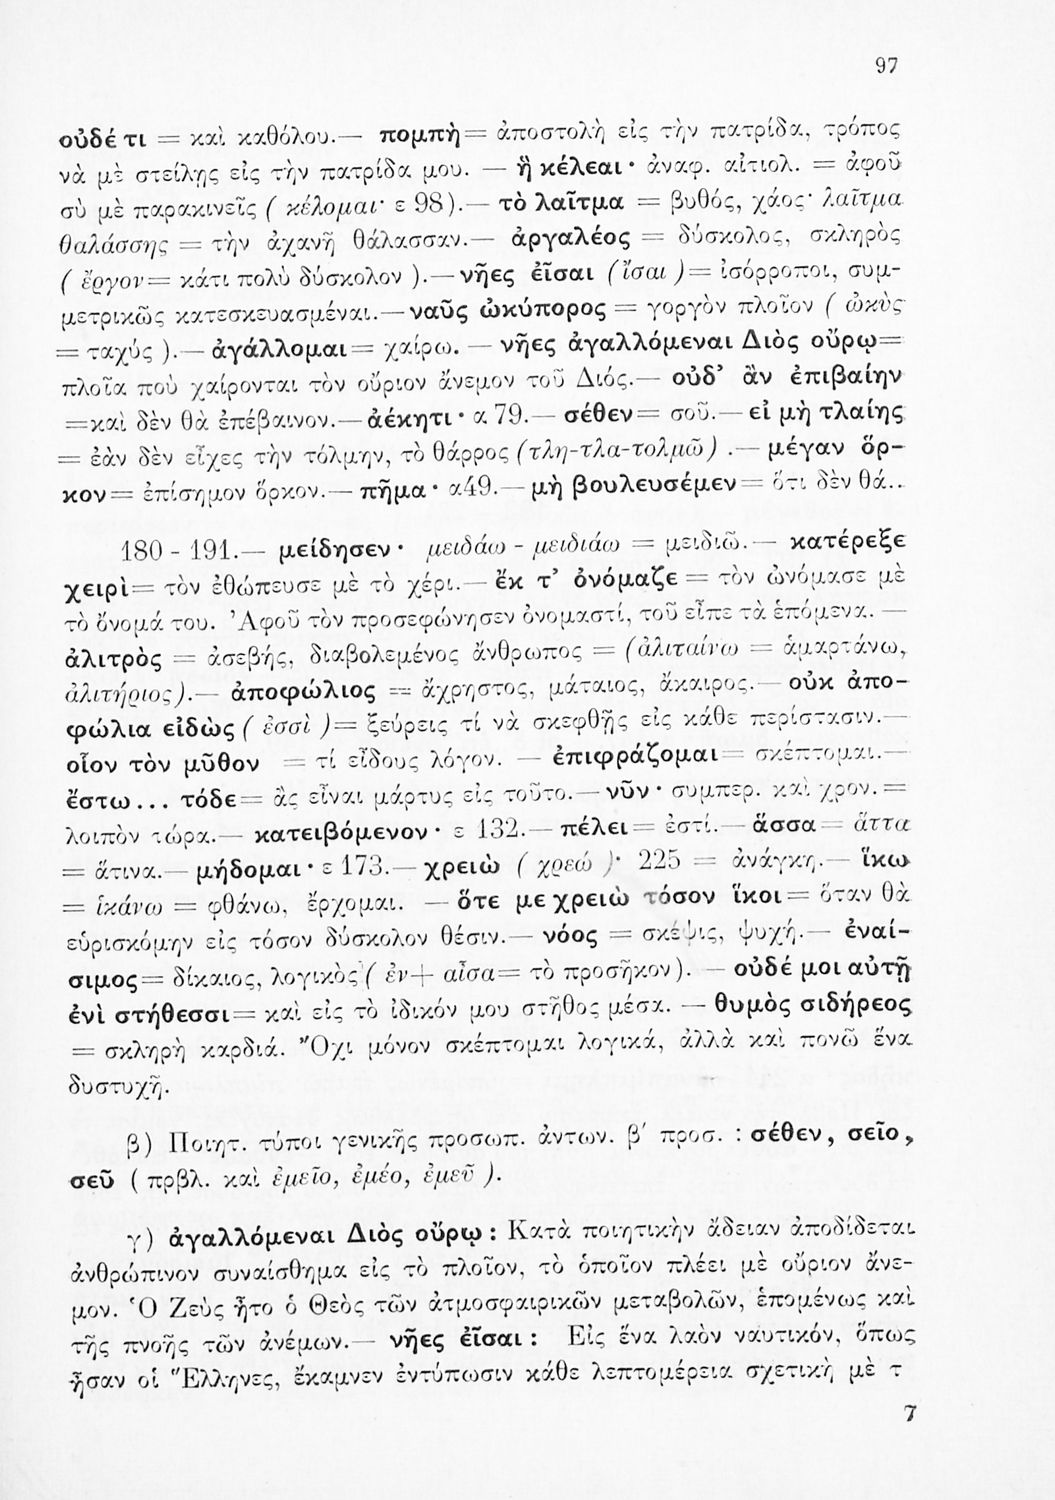 97
οὐδέ τι = καὶ καθόλου.— πομπὴ = ἀποστολὴ εἰς τὴν πατρίδα, τρόπος
νὰ μὲ στείλῃς εἰς τὴν πατρίδα μου. — ἣ κέλεαι· ἀναφ. αἰτιολ. = ἀφοῦ
σὺ μὲ παρακινεῖς ( κέλομαι· ε 98).— τὸ λαῖτμα = βυθός, χάος· λαῖτμα
θαλάσσης = τὴν ἀχανῆ θάλασσαν.— ἀργαλέος = δύσκολος, σκληρὸς
( ἔργον = κάτι πολὺ δύσκολον ).— νῆες ἐῖσαι (ἴσαι ) = ἰσόρροποι, συμ-
μετρικῶς κατεσκευασμέναι.— ναῦς ὠκύπορος = γοργὸν πλοῖον ( ὠκὺς
= ταχύς ).— ἀγάλλομαι = χαίρω. — νῆες ἀγαλλόμεναι Διὸς οὔρῳ =
πλοῖα ποὺ χαίρονται τὸν οὔριον ἄνεμον τοῦ Διός.— οὐδ’ ἂν ἐπιβαίην
=καὶ δὲν θὰ ἐπέβαινον.— ἀέκητι· α 79.— σέθεν = σοῦ.— εἰ μὴ τλαίης
= ἐὰν δὲν εἶχες τὴν τόλμην, τὸ θάρρος (τλη-τλα-τολμῶ) .— μέγαν ὅρ-
κον = ἐπίσημον ὅρκον.— πῆμα· α49.— μὴ βουλευσέμεν = ὅτι δὲν θά..
180 - 191.— μείδησεν· μειδάω - μειδιάω = μειδιῶ.— κατέρεξε
χειρὶ = τὸν ἐθώπευσε μὲ τὸ χέρι.— ἔκ τ’ ὀνόμαζε = τὸν ὠνόμασε μὲ
τὸ ὄνομά του. Ἀφοῦ τὸν προσεφώνησεν ὀνομαστί, τοῦ εἶπε τὰ ἑπόμενα. —
ἀλιτρὸς = ἀσεβής, διαβολεμένος ἄνθρωπος = (ἀλιταίνω = ἁμαρτάνω,
ἀλιτήριος).— ἀποφώλιος = ἄχρηστος, μάταιος, ἄκαιρος.— οὐκ ἀπο-
φώλια εἰδὼς ( ἐσσὶ ) = ξεύρεις τί νὰ σκεφθῇς εἰς κάθε περίστασιν.—
οἷον τὸν μῦθον = τί εἴδους λόγον. — ἐπιφράζομαι = σκέπτομαι.—
ἔστω... τόδε = ἂς εἶναι μάρτυς εἰς τοῦτο.— νῦν· συμπερ. καὶ χρον. =
λοιπὸν τώρα.— κατειβόμενον· ε 132.— πέλει = ἐστί.— ἅσσα = ἅττα
= ἅτινα.— μήδομαι· ε 173.— χρειὼ ( χρεώ )· 225 = ἀνάγκη.— ἵκω
= ἱκάνω = φθάνω, ἔρχομαι. — ὅτε με χρειὼ τόσον ἵκοι = ὅταν θὰ
εὑρισκόμην εἰς τόσον δύσκολον θέσιν.— νόος = σκέψις, ψυχή.— ἐναί-
σιμος = δίκαιος, λογικὸς ( ἐν + αἶσα = τὸ προσῆκον). — οὐδέ μοι αὐτῇ
ἐνὶ στήθεσσι = καὶ εἰς τὸ ἰδικόν μου στῆθος μέσα. — θυμὸς σιδήρεος
= σκληρὴ καρδιά. Ὄχι μόνον σκέπτομαι λογικά, ἀλλὰ καὶ πονῶ ἕνα
δυστυχῆ.
β) Ποιητ. τύποι γενικῆς προσωπ. ἀντων. β′ προσ. : σέθεν, σεῖο,
σεῦ ( πρβλ. καὶ ἐμεῖο, ἐμέο, ἐμεῦ ).
γ) ἀγαλλόμεναι Διὸς οὔρῳ : Κατὰ ποιητικὴν ἄδειαν ἀποδίδεται
ἀνθρώπινον συναίσθημα εἰς τὸ πλοῖον, τὸ ὁποῖον πλέει μὲ οὔριον ἄνε-
μον. Ὁ Ζεὺς ἦτο ὁ Θεὸς τῶν ἀτμοσφαιρικῶν μεταβολῶν, ἑπομένως καὶ
τῆς πνοῆς τῶν ἀνέμων.— νῆες ἐῖσαι : Εἰς ἕνα λαὸν ναυτικόν, ὅπως
ἦσαν οἱ Ἕλληνες, ἔκαμνεν ἐντύπωσιν κάθε λεπτομέρεια σχετικὴ μὲ τ
7